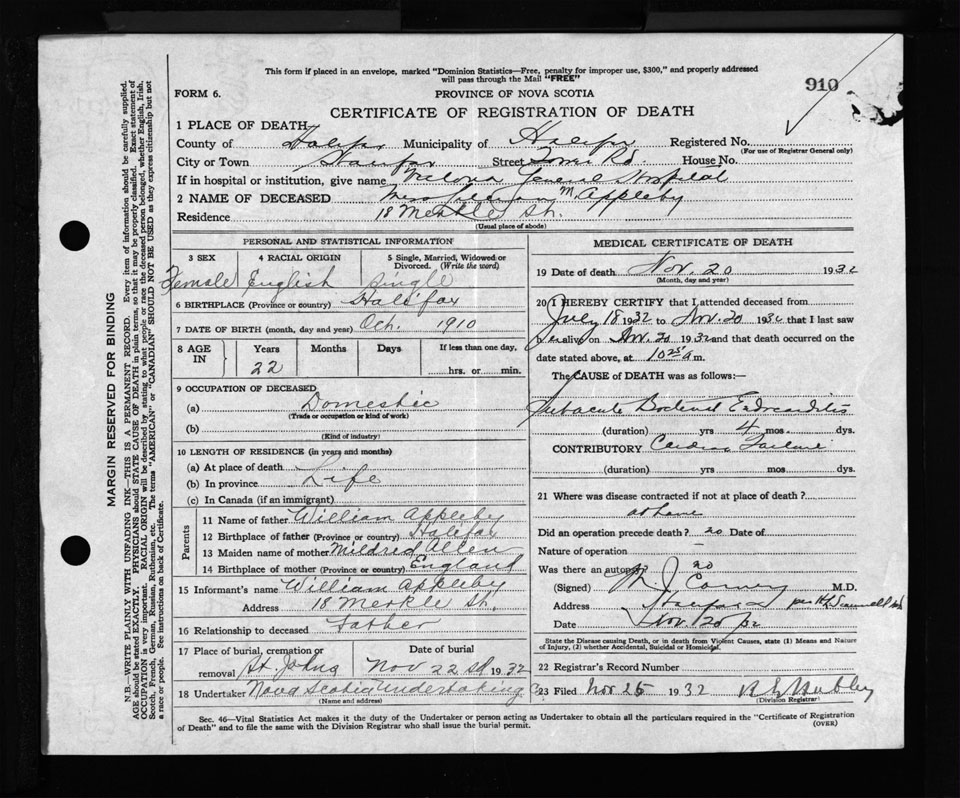 This form if placed in an envelope, marked "Dominion Statistics—Free, penalty for improper use, $300," and properly addressed
will pass through the Mail "FREE"
910
FORM 6.
PROVINCE OF NOVA SCOTIA
CERTIFICATE OF REGISTRATION OF DEATH
1 PLACE OF DEATH
County of Halifax Municipality of Halifax Registered No.
(For use of Registrar General only)
City or Town Halifax Street Tower Rd. House No.
If in hospital or institution, give name Victoria General Hospital
2 NAME OF DECEASED Miss Lillian M Appleby
Residence 18 Merkle St.
(Usual place of abode)
PERSONAL AND STATISTICAL INFORMATION
3 SEX 4 RACIAL ORIGIN 5 Single, Married, Widowed or
Divorced. (Write the word)
Female English Single
6 BIRTHPLACE (Province or country) Halifax
7 DATE OF BIRTH (month, day and year) Oct. 1910
8 AGE IN Years Months Days If less than one day,
22 hrs. or min.
9 OCCUPATION OF DECEASED
(a) Domestic
(Trade or occupation or kind of work)
(b)
(Kind of industry)
10 LENGTH OF RESIDENCE (in years and months)
(a) At place of death
(b) In province Life
(c) In Canada (if an immigrant)
Parents
11 Name of father William Appleby
12 Birthplace of father (Province or country) Halifax
13 Maiden name of mother Mildred Allen
14 Birthplace of mother (Province or country) England
15 Informant's name William Appleby
Address 18 Merkle St.
16 Relationship to deceased Father
17 Place of burial, cremation or Date of burial
removal St. Johns Nov 22nd 1932
18 Undertaker Nova Scotia Undertaking Co.
(Name and address)
MEDICAL CERTIFICATE OF DEATH
19 Date of death Nov. 20 1932
(Month, day and year)
20 I HEREBY CERTIFY that I attended deceased from
July 18 1932 to Nov. 20 1932 that I last saw
alive on Nov. 20 1932 and that death occurred on the
date stated above, at 10 25 a m.
The CAUSE of DEATH was as follows:—
Subacute Bacterial Endocarditis
(duration) yrs 4 mos. dys.
CONTRIBUTORY Cardiac Failure
(duration) yrs. mos. dys.
21 Where was disease contracted if not at place of death?
at home
Did an operation precede death? no Date of
Nature of operation —
Was there an autopsy? no
(Signed) M.D.
Address Halifax per
Date Nov. 20 32
State the Disease causing Death, or in death from Violent Causes, state (1) Means and Nature
of Injury, (2) whether Accidental, Suicidal or Homicidal.
22 Registrar's Record Number
23 Filed Nov 25 1932
(Division Registrar)
Sec. 46—Vital Statistics Act makes it the duty of the Undertaker or person acting as Undertaker to obtain all the particulars required in the "Certificate of Registration
of Death" and to file the same with the Division Registrar who shall issue the burial permit.
(OVER)
MARGIN RESERVED FOR BINDING
N.B.—WRITE PLAINLY WITH UNFADING INK—THIS IS A PERMANENT RECORD. Every item of information should be carefully supplied.
AGE should be stated EXACTLY. PHYSICIANS should STATE CAUSE OF DEATH in plain terms, so that it may be properly classified. Exact statement of
OCCUPATION is very important. RACIAL ORIGIN will be described by stating to what people or race the deceased person belonged, whether English, Irish,
Scotch, French, German, Russian, Ruthenian, etc. The terms "AMERICAN" or "CANADIAN" SHOULD NOT BE USED as they express citizenship but not
a race or people. See instructions on back of Certificate.